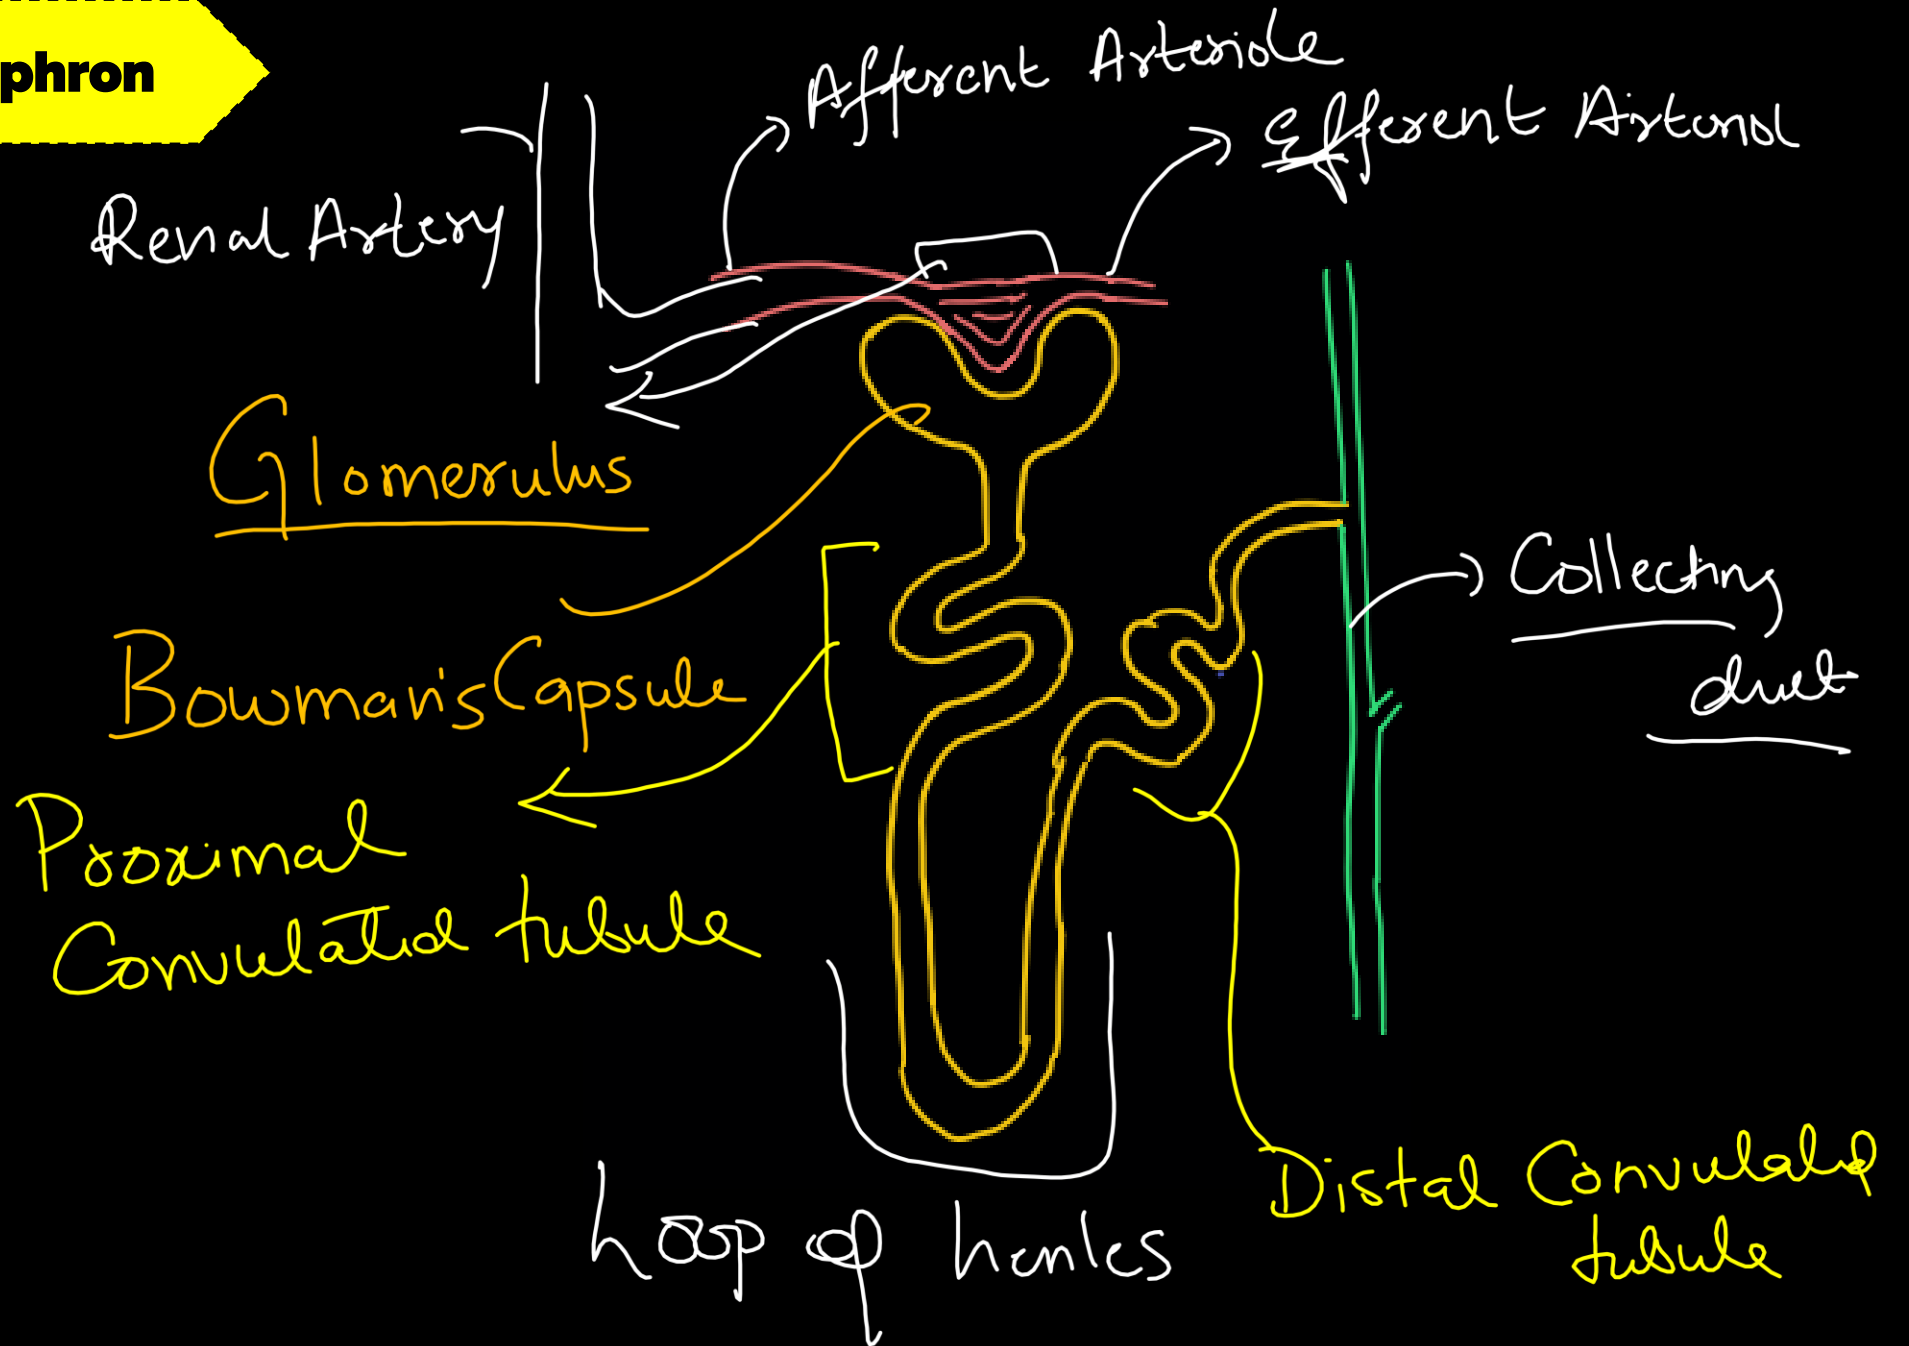 phron
Afferent Arteriole
Efferent Artoriol
Renal Artery
Glomerulus
Bowman's Capsule
Proximal
Convulated tubule
Collecting
duct
Loop of henles
Distal Convulated
tubule